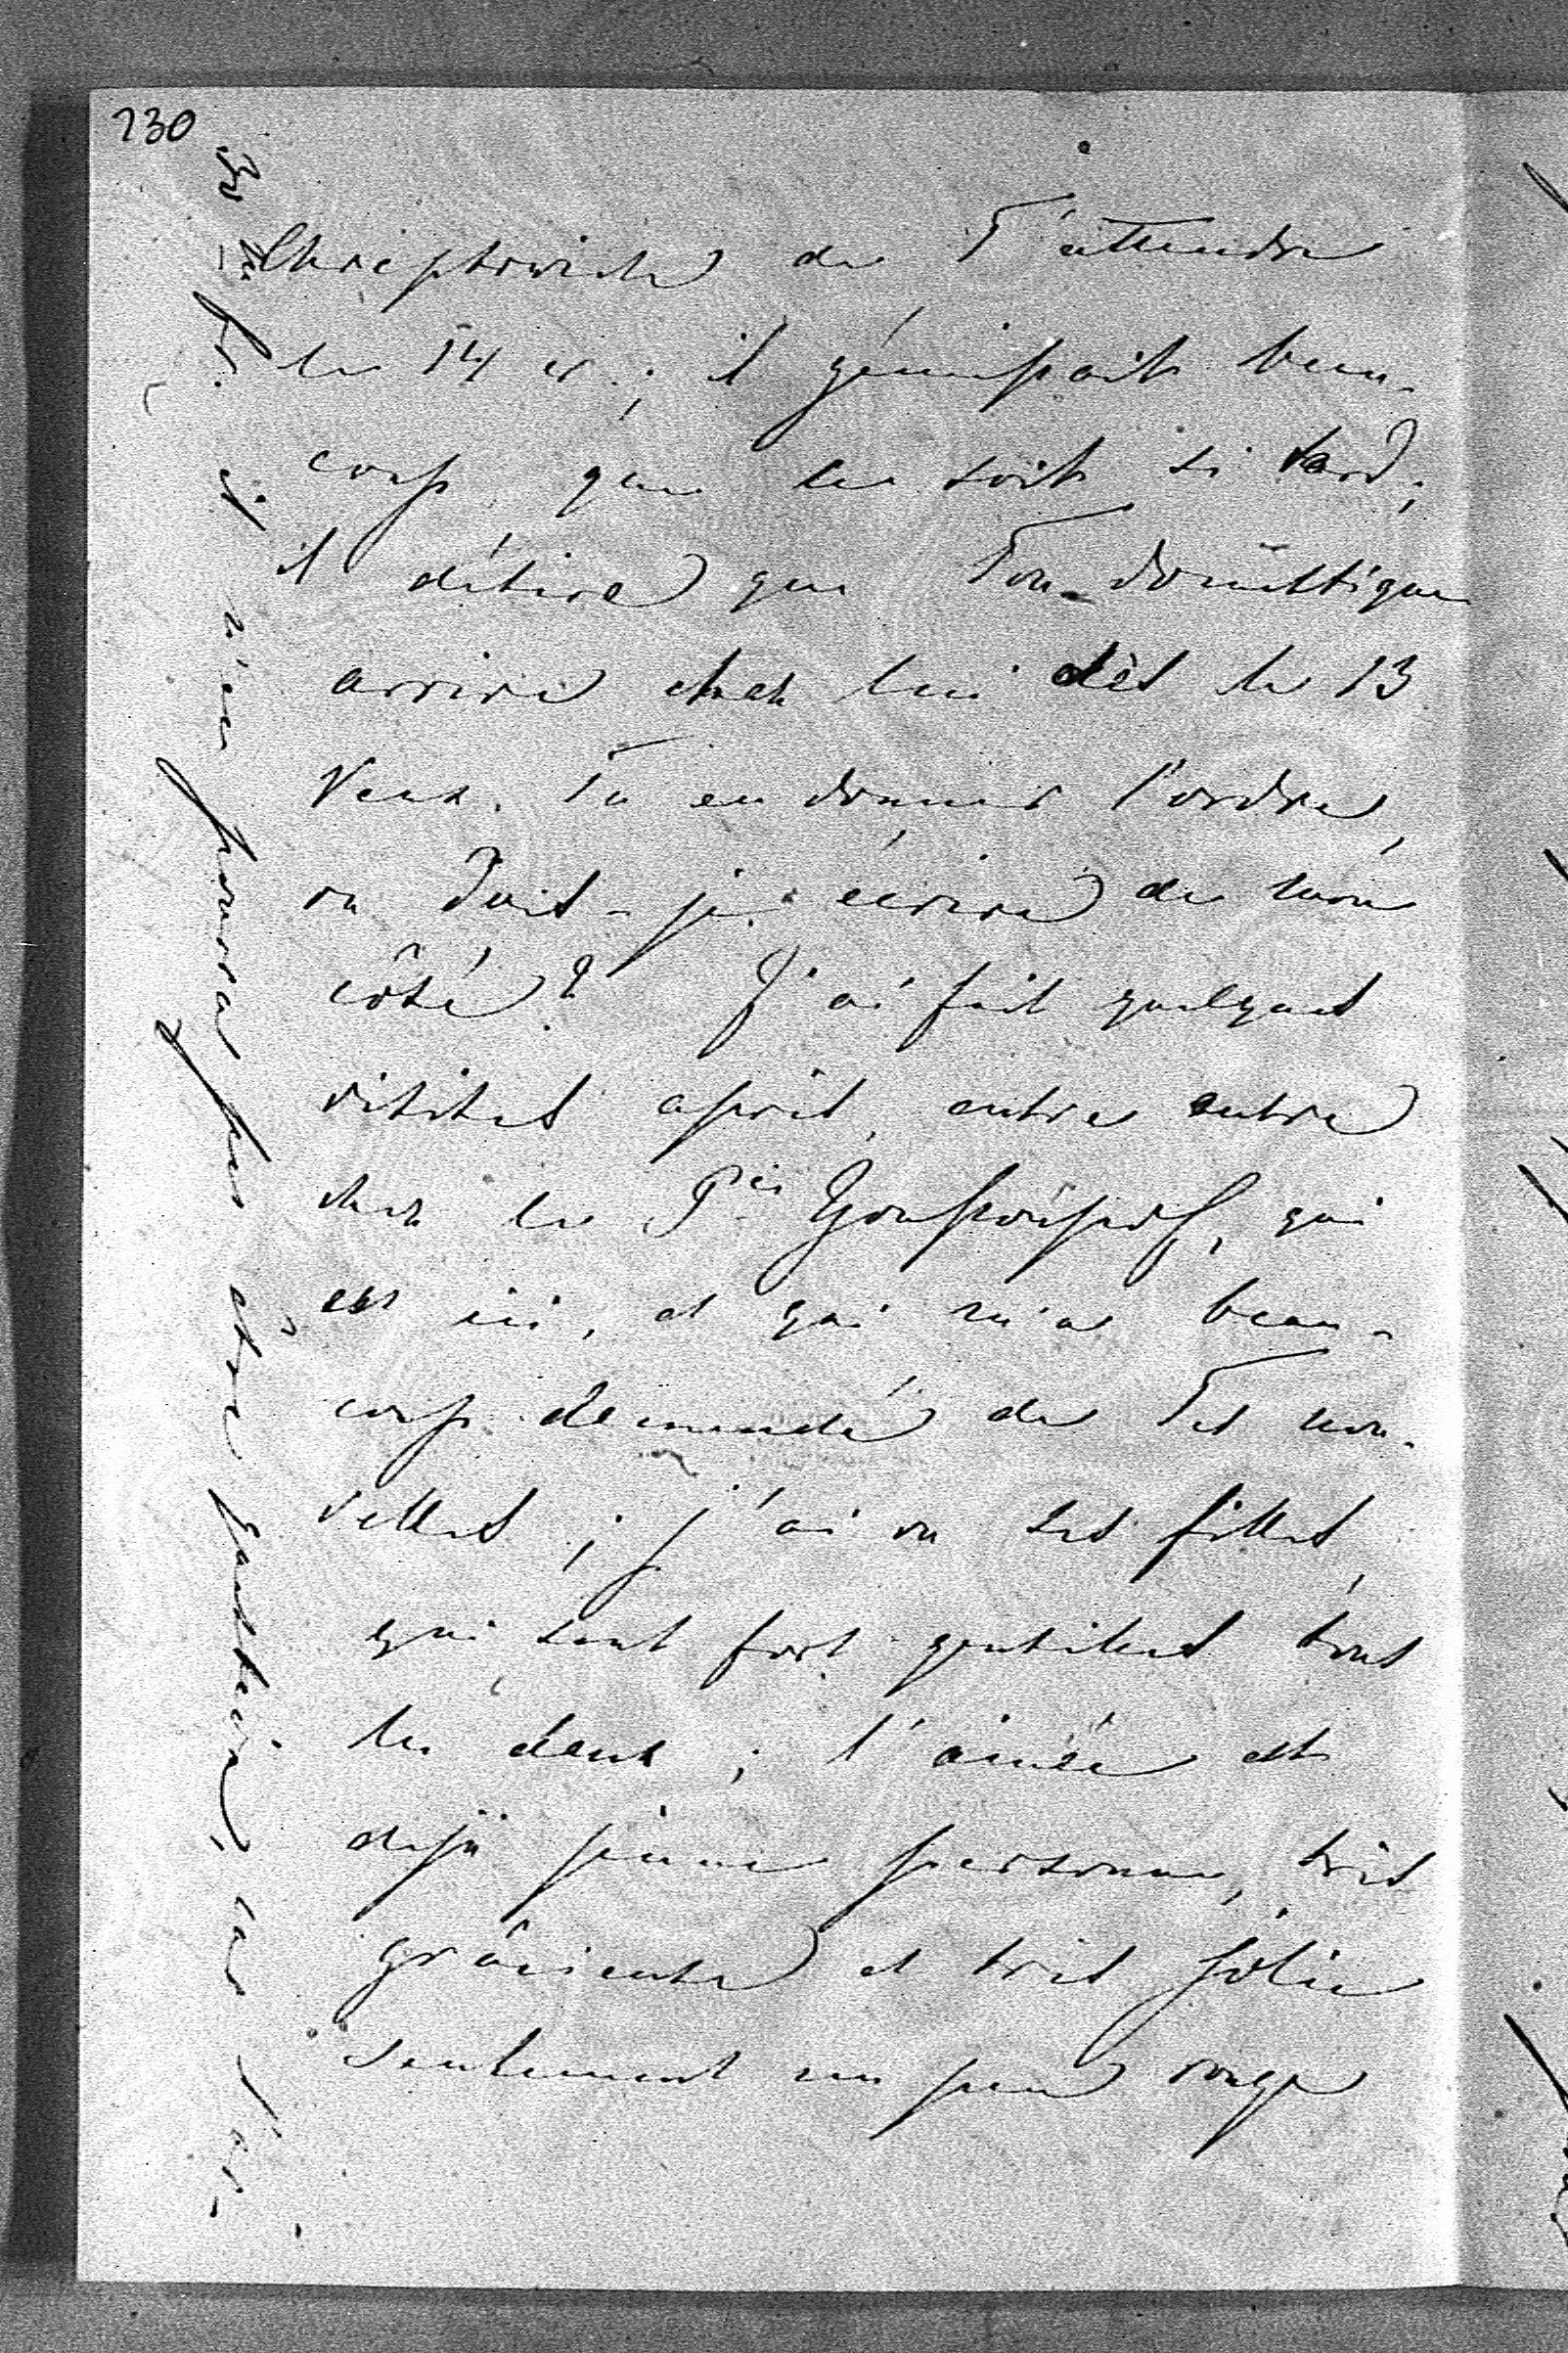 230
Chreptowich de T'attendre
le 14 er.; il gémissait beau-
coup que ce soit si tard;
il désire que Ton domestique
arrive chez lui dès le 13
Veux-Tu en donner l'ordre,
ou dois-je écrire de mon
côté? J'ai fait quelques
visites après, entre entre
chez la Pce Youssoupof, qui
est ici, et qui m'a beau-
coup demandé de Tes nou-
velles; j'ai vu ses filles,
qui sont fort gentilles tous
les deux; l'ainée est
dejà jeune personne, très
grâcieuse et très jolie
seulement un peu rouge
pourra pas être